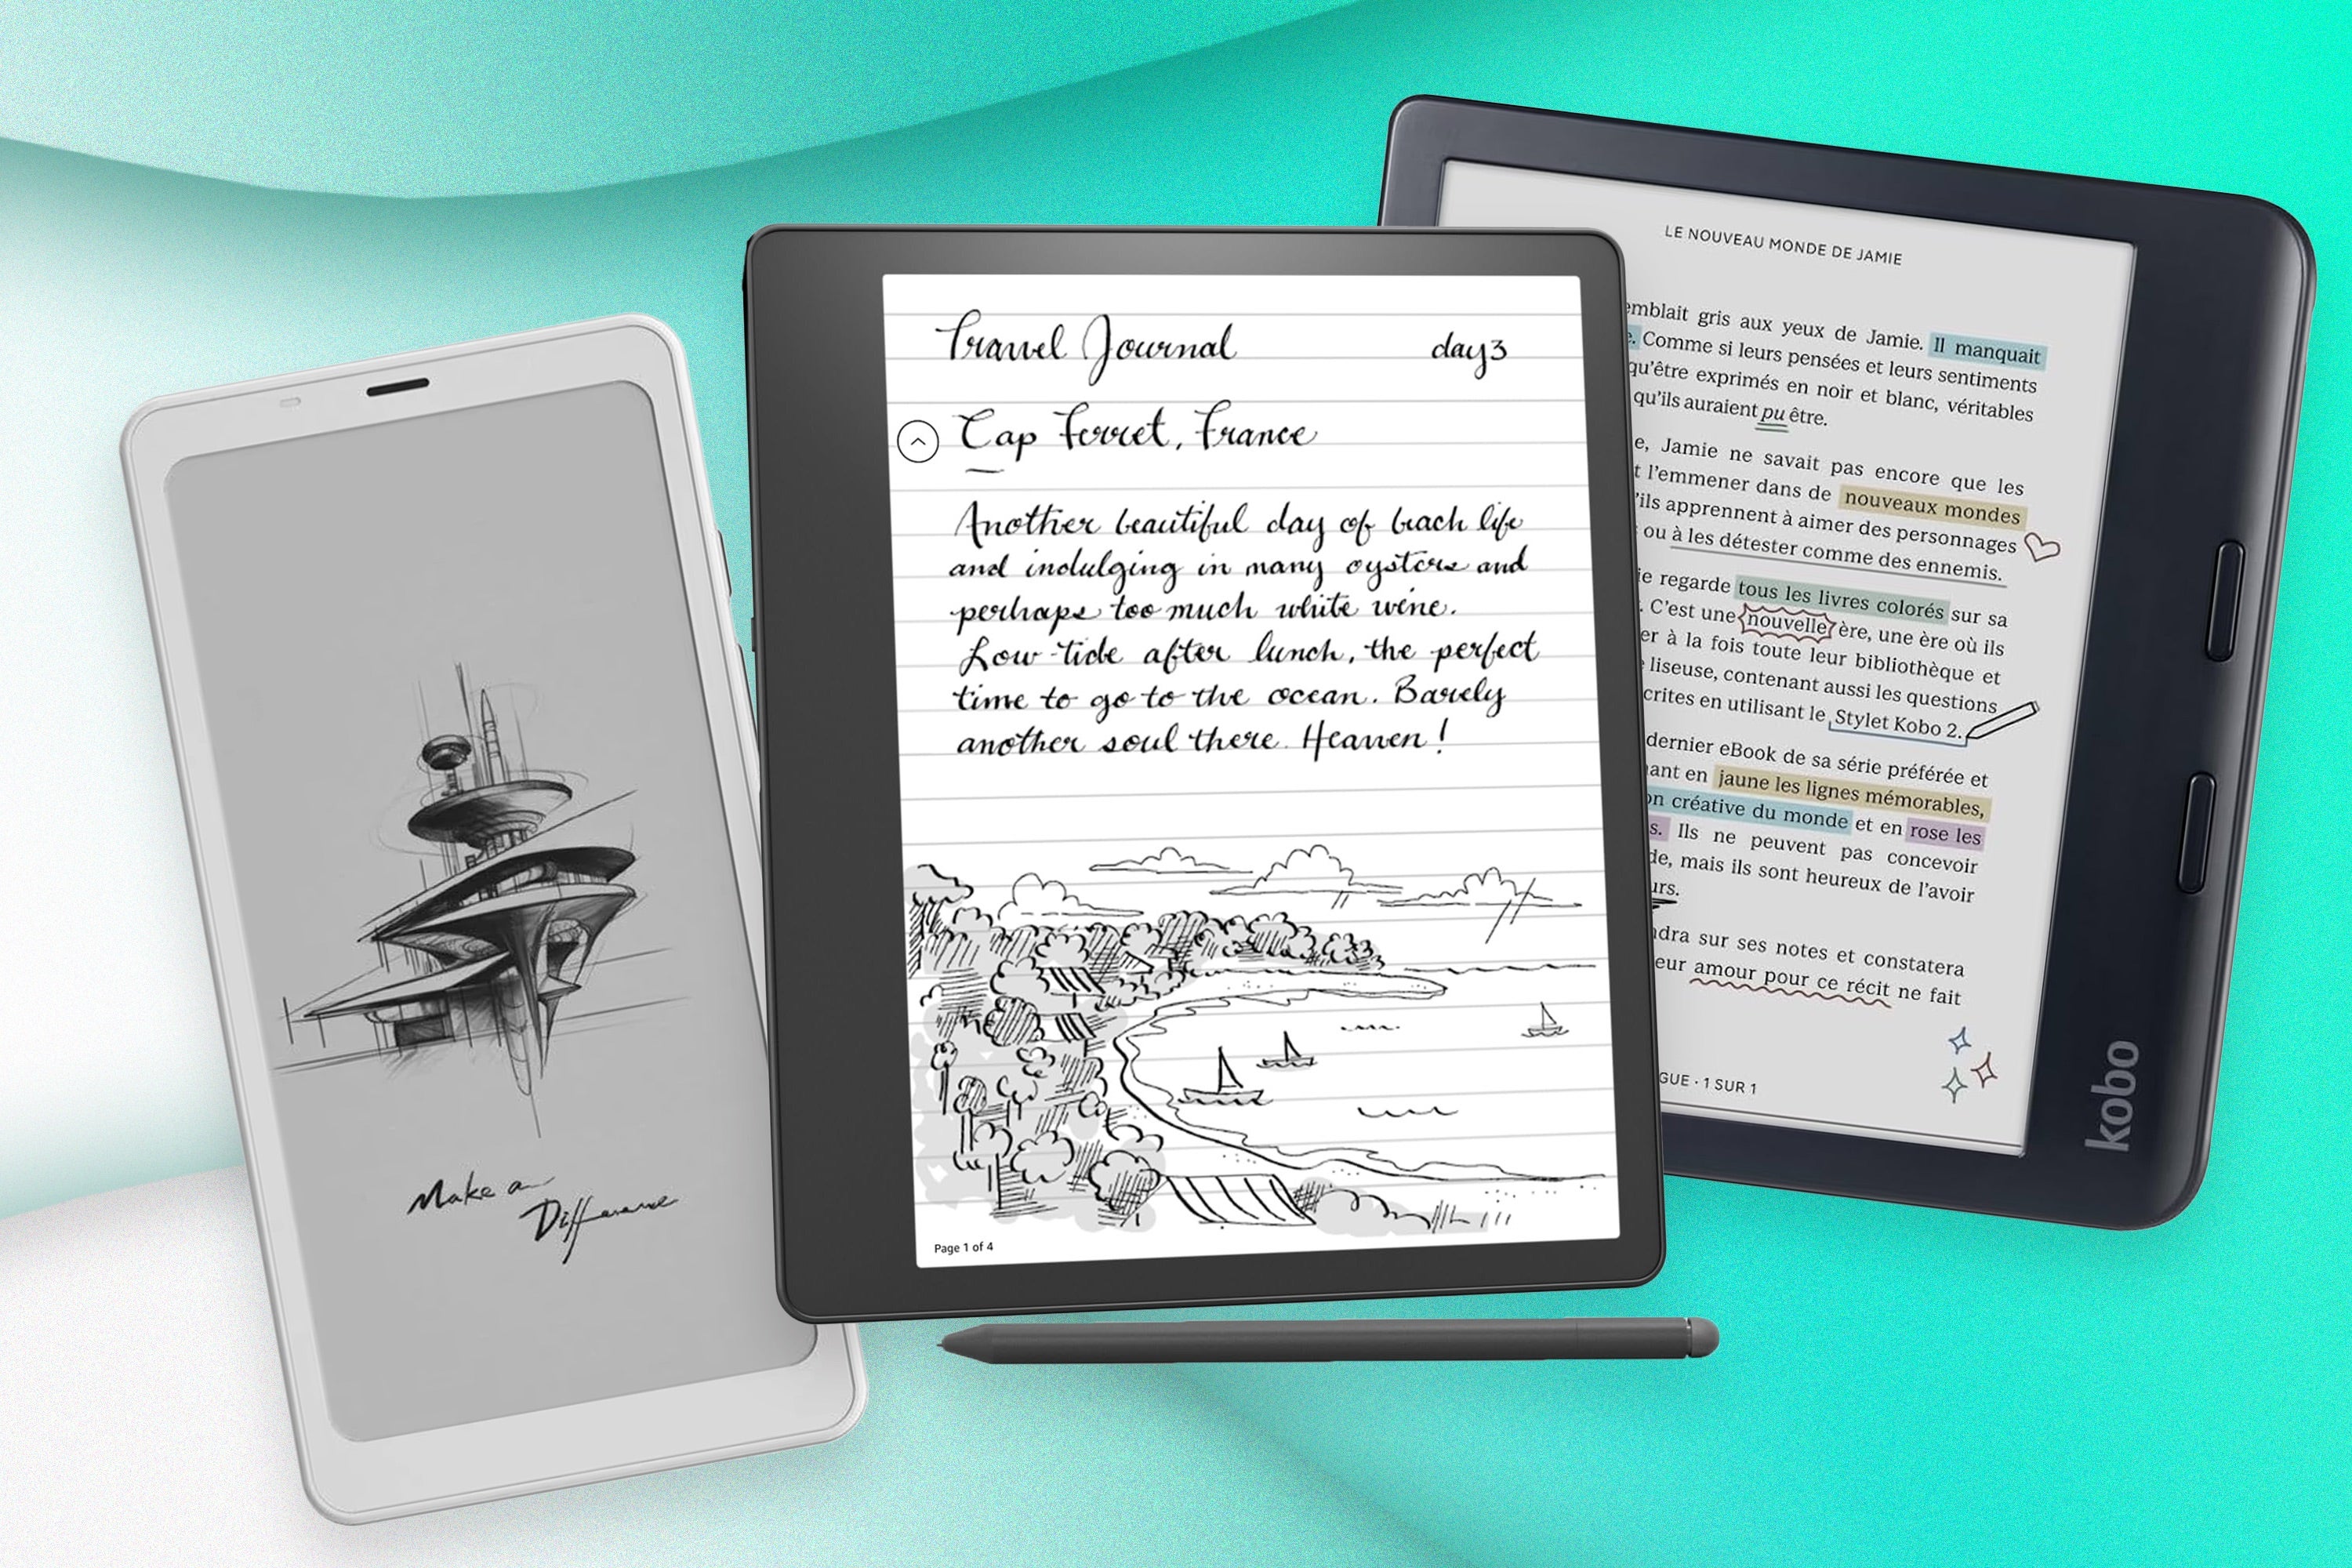 Make a
Difference
Travel Journal
day 3
Cap Ferret, France
Another beautiful day of beach life
and indulging in many oysters and
perhaps too much white wine.
Low tide after lunch, the perfect
time to go to the ocean. Barely
another soul there. Heaven!
Page 1 of 4
LE NOUVEAU MONDE DE JAMIE
emblait gris aux yeux de Jamie. Il manquait
e. Comme si leurs pensées et leurs sentiments
qu'être exprimés en noir et blanc, véritables
qu'ils auraient pu être.
e, Jamie ne savait pas encore que les
t l'emmener dans de nouveaux mondes
'ils apprennent à aimer des personnages
ou à les détester comme des ennemis.
ie regarde tous les livres colorés sur sa
. C'est une nouvelle ère, une ère où ils
er à la fois toute leur bibliothèque et
e liseuse, contenant aussi les questions
crites en utilisant le Stylet Kobo 2.
dernier eBook de sa série préférée et
nant en jaune les lignes mémorables,
on créative du monde et en rose les
s. Ils ne peuvent pas concevoir
de, mais ils sont heureux de l'avoir
urs.
ndra sur ses notes et constatera
eur amour pour ce récit ne fait
GUE · 1 SUR 1
kobo